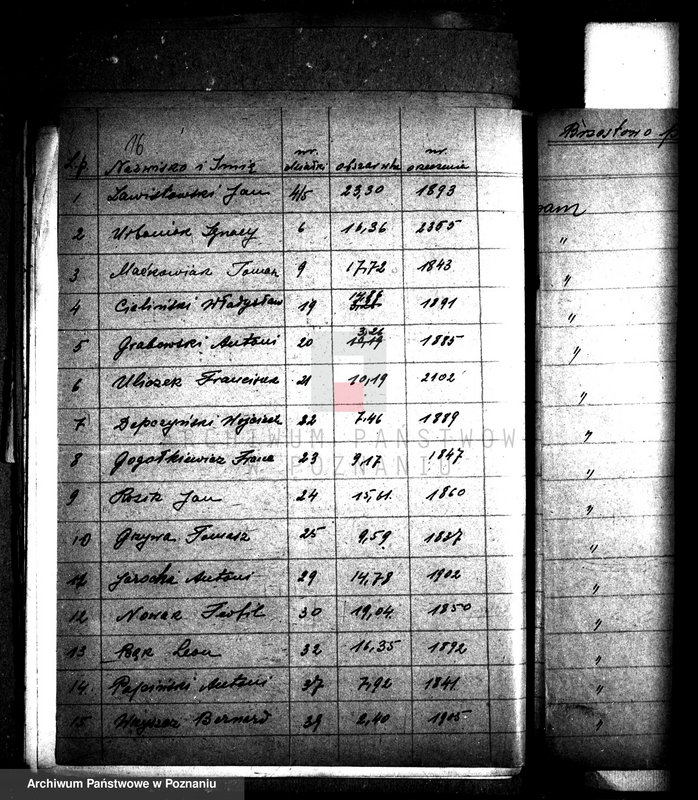 16
nr. nr.
Lp Nazwisko i Imię działki obszar ha orzeczenia
1 Lawisłowski Jan 4/5 23,30 1893
2 Urbaniak Ignacy 6 16,36 2355
3 Maćkowiak Roman 9 17,72 1843
4 Cieliński Władysław 19 14,87 1891
5 Grabowski Antoni 20 3,26 10,19 1885
6 Franciszek 21 10,19 2102
7 Depczyński Wojciech 22 7,46 1889
8 Gogołkiewicz Franc 23 9,17 1847
9 Rosik Jan 24 15,61 1860
10 Grzywa Tomasz 25 9,59 1837
12 Jarocha Antoni 29 14,78 1902
12 Nowak Teofil 30 19,04 1850
13 Bąk Leon 32 16,35 1892
14 Papiński Antoni 37 7,92 1841
15 Bernard 39 2,40 1905
Brzostowo
"
"
"
"
"
"
"
"
"
"
"
"
"
"
ARCHIWUM PAŃSTWOWE
W POZNANIU
Archiwum Państwowe w Poznaniu